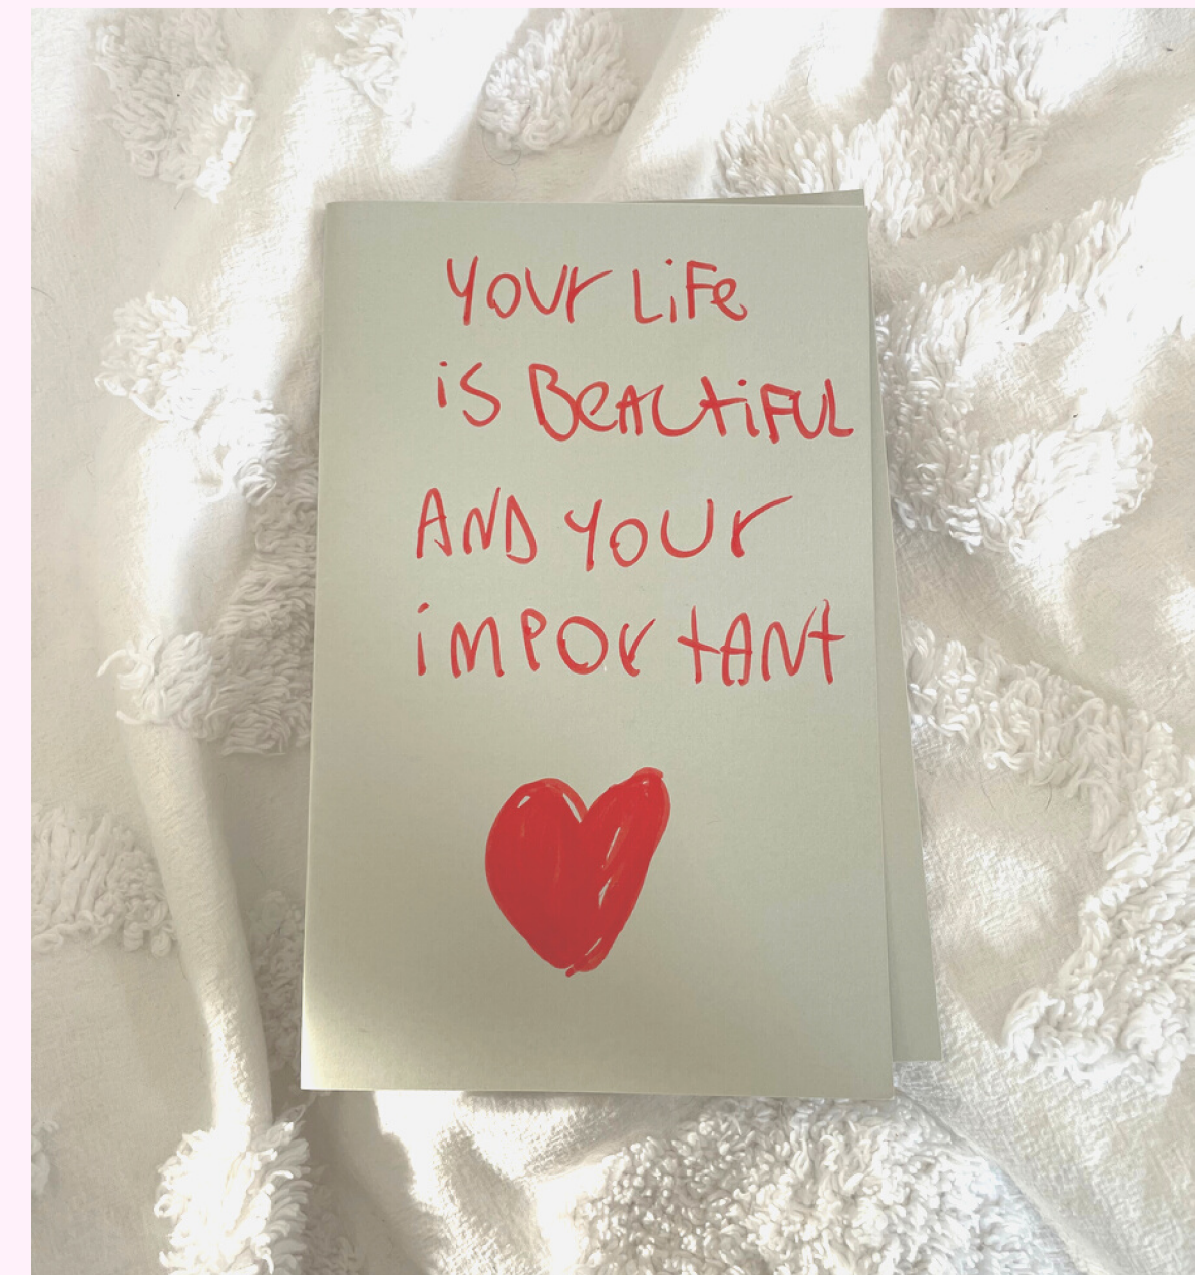 YOUr LiFe
iS BeAUtiFUL
AND YOUr
iMPOrtANt